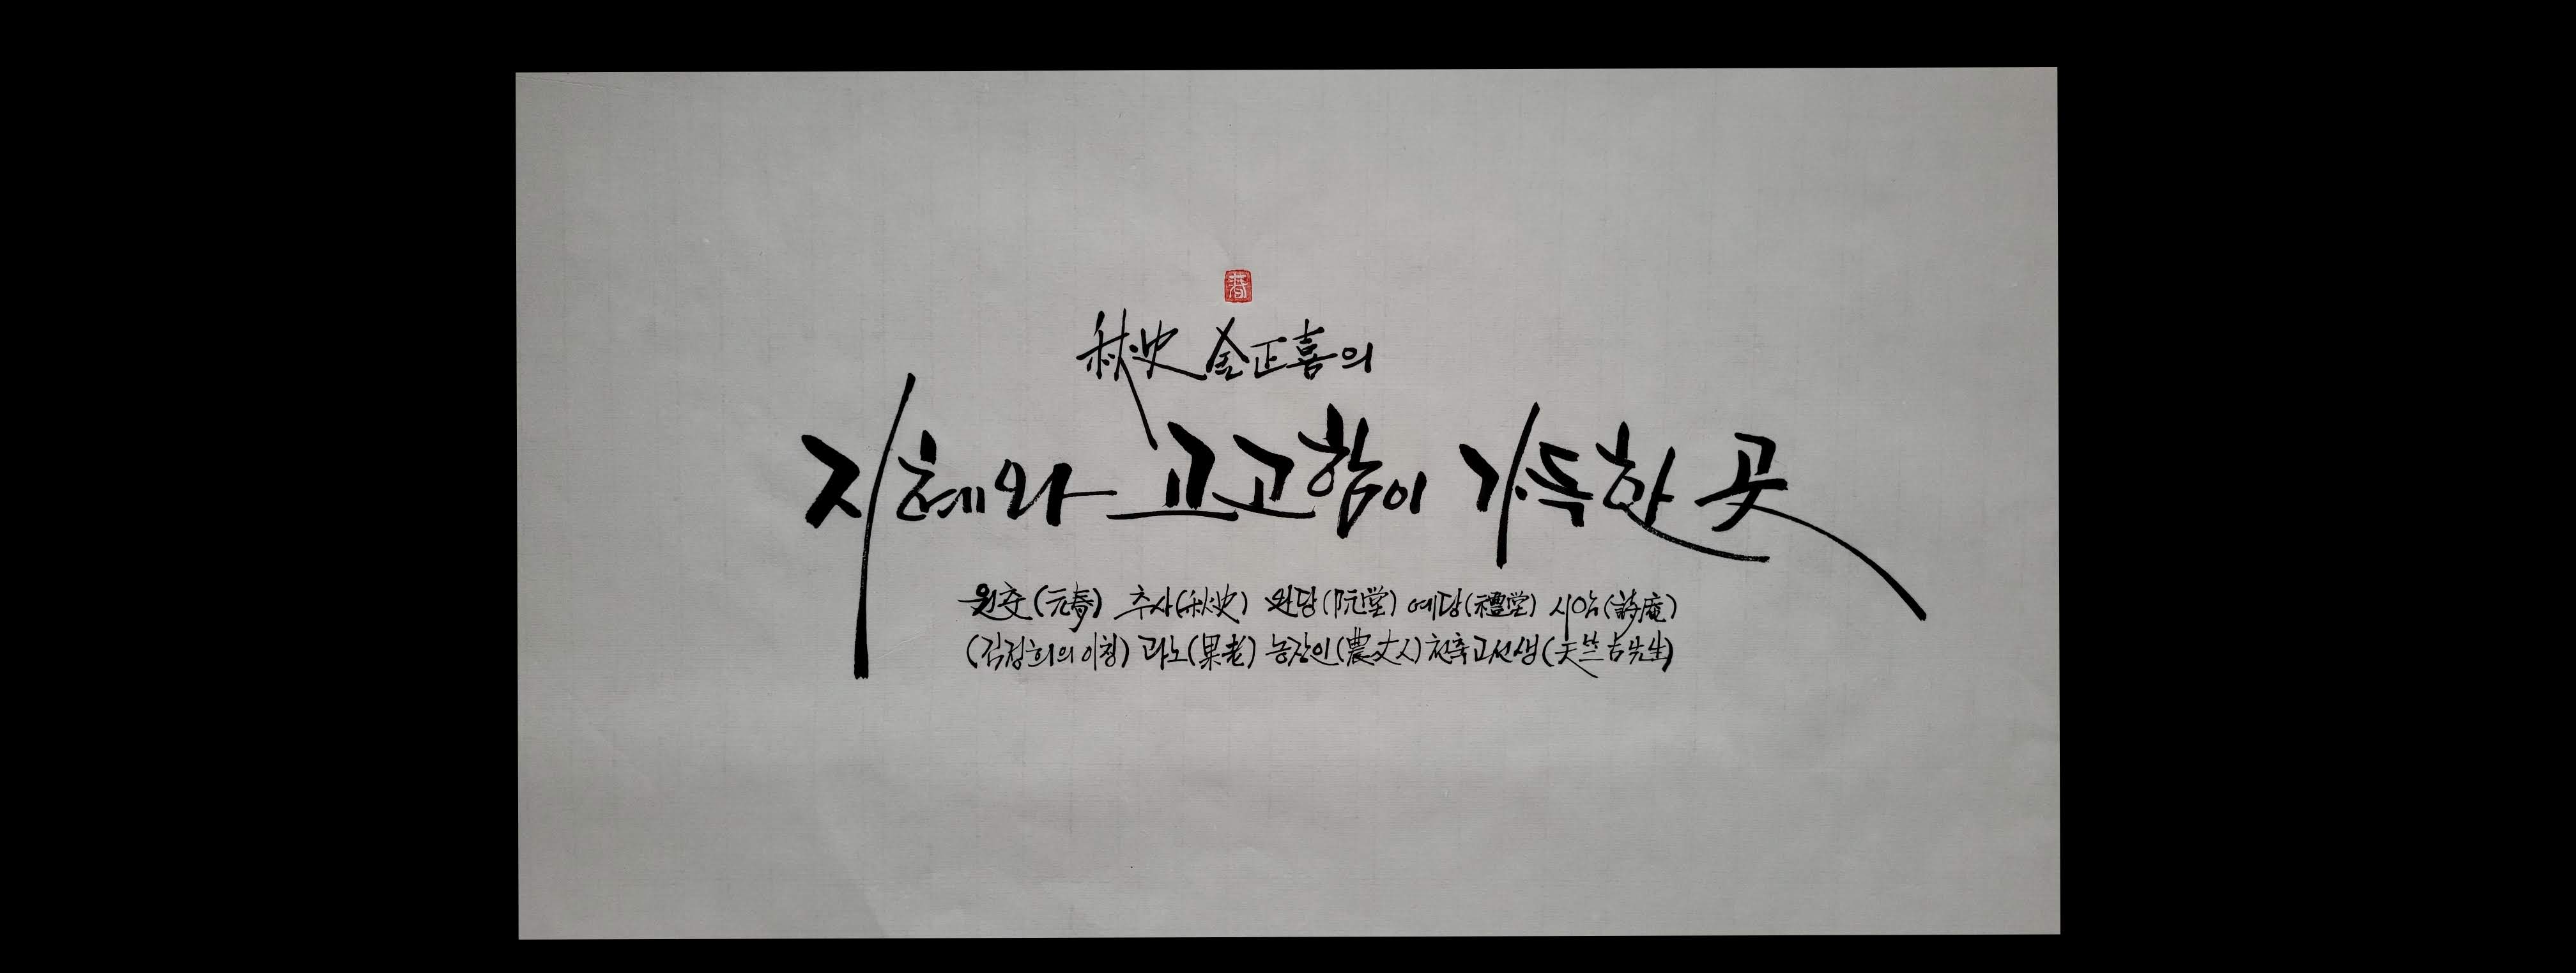 秋史 金正喜의
지혜와 고고함이 가득한 곳
원춘(元春) 추사(秋史) 완당(阮堂) 예당(禮堂) 시암(詩庵)
(김정희의 이칭) 과노(果老) 농장인(農丈人) 천축고선생(天竺古先生)